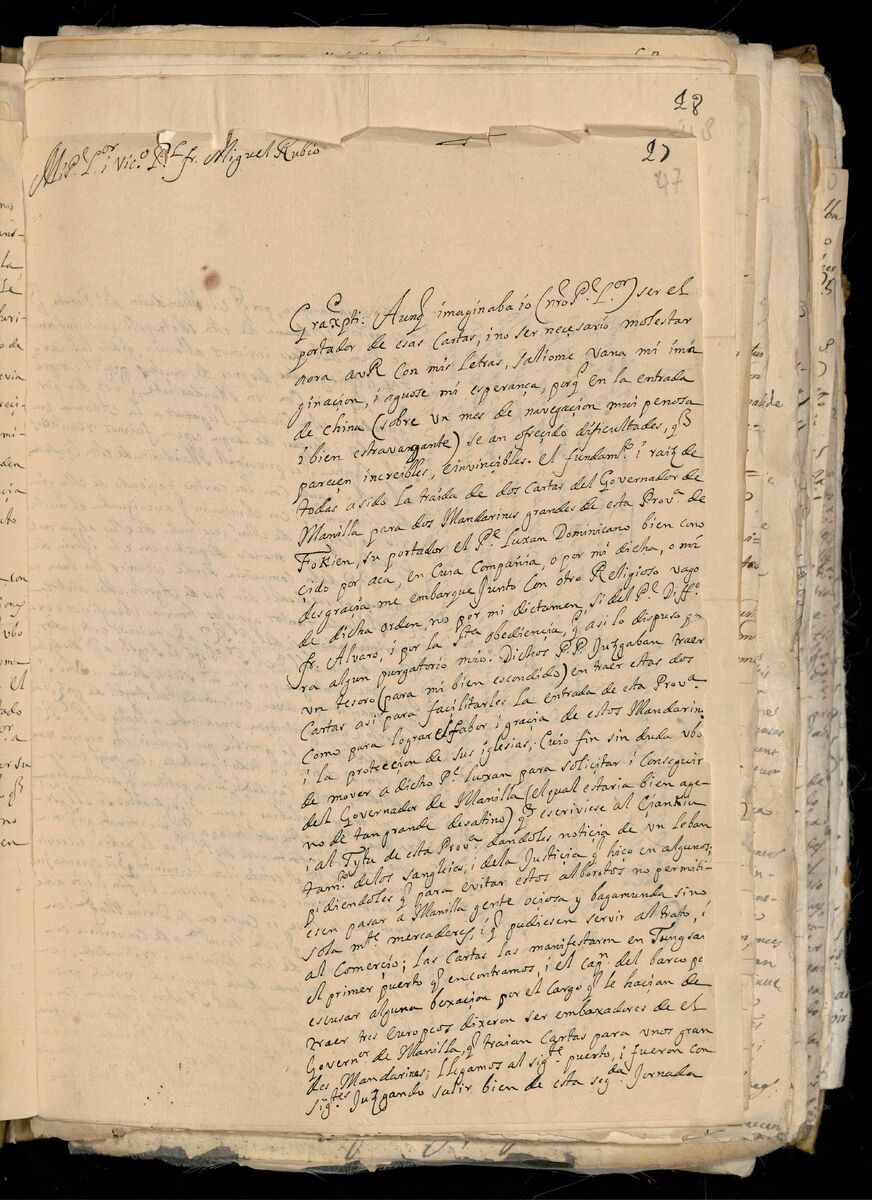 28
48
Mi P.e L.or i Vic.o P.L fr. Miguel Rubio
27
47
Gra Xpti: Aunq imaginaba io (nro P.e L.or) ser el
portador de esas Cartas, i no ser neçesario molestar
aora a vR Con mis Letras, saliome vana mi ima
ginacion, i aguose mi esperança, porq en la entrada
de china (sobre un mes de navegacion mui penosa
i bien estravagante) se an ofrecido dificultades, q
pareçen increibles, e invincibles. el fundam.to i raiz de
todas a sido la traida de dos Cartas del Governador de
Manilla para dos Mandarines grandes de esta Prov.a de
Fokien, su portador el P.e Luxan Dominicano bien cono
çido por aca, en Cuia Compañia, o por mi dicha, o mi
desgracia me embarque Junto Con otro Religioso vago
de dicha orden, no por mi dictamen, si del P.e Diff.or
fr. Alvaro, i por la S.ta obediencia, q asi lo dispuso pa
ra algun purgatorio mio. Dichos P.P. Juzgaban traer
un tesoro (para mi bien escondido) en traer estas dos
Cartas asi para facilitarles la entrada de esta Prov.a
Como para lograr el fabor i gracia de estos Mandarin.
i la proteccion de sus iglesias; Cuio fin sin duda ubo
de mover a dicho P.e Luxan para solicitar i Conseguir
del Governador de Manilla (el qual estaria bien age
no de tan grande desatino) q escriviese al
i al Tytu de esta Prov.a dandoles noticia de un leban
tam.to de los sangleies, i de la Justicia q hiço en algunos;
pidiendoles q para evitar estos alborotos no permiti-
esen pasar a Manilla gente ociosa y bagamunda sino
sola m.te mercaderes, i q pudiesen servir al trato, i
al Comercio; las Cartas las manifestaron en Tungsan
el primer puerto q encontramos, i el cap.n del barco po
escusar alguna bexacion por el Cargo q le hacian de
traer tres Europeos dixeron ser embaxadores de el
Govern.or de Manilla, q traian Cartas para unos gran
des Mandarines; llegamos al sig.te puerto, i fueron con
sig.tes Juzgando salir bien de esta seg.da Jornada